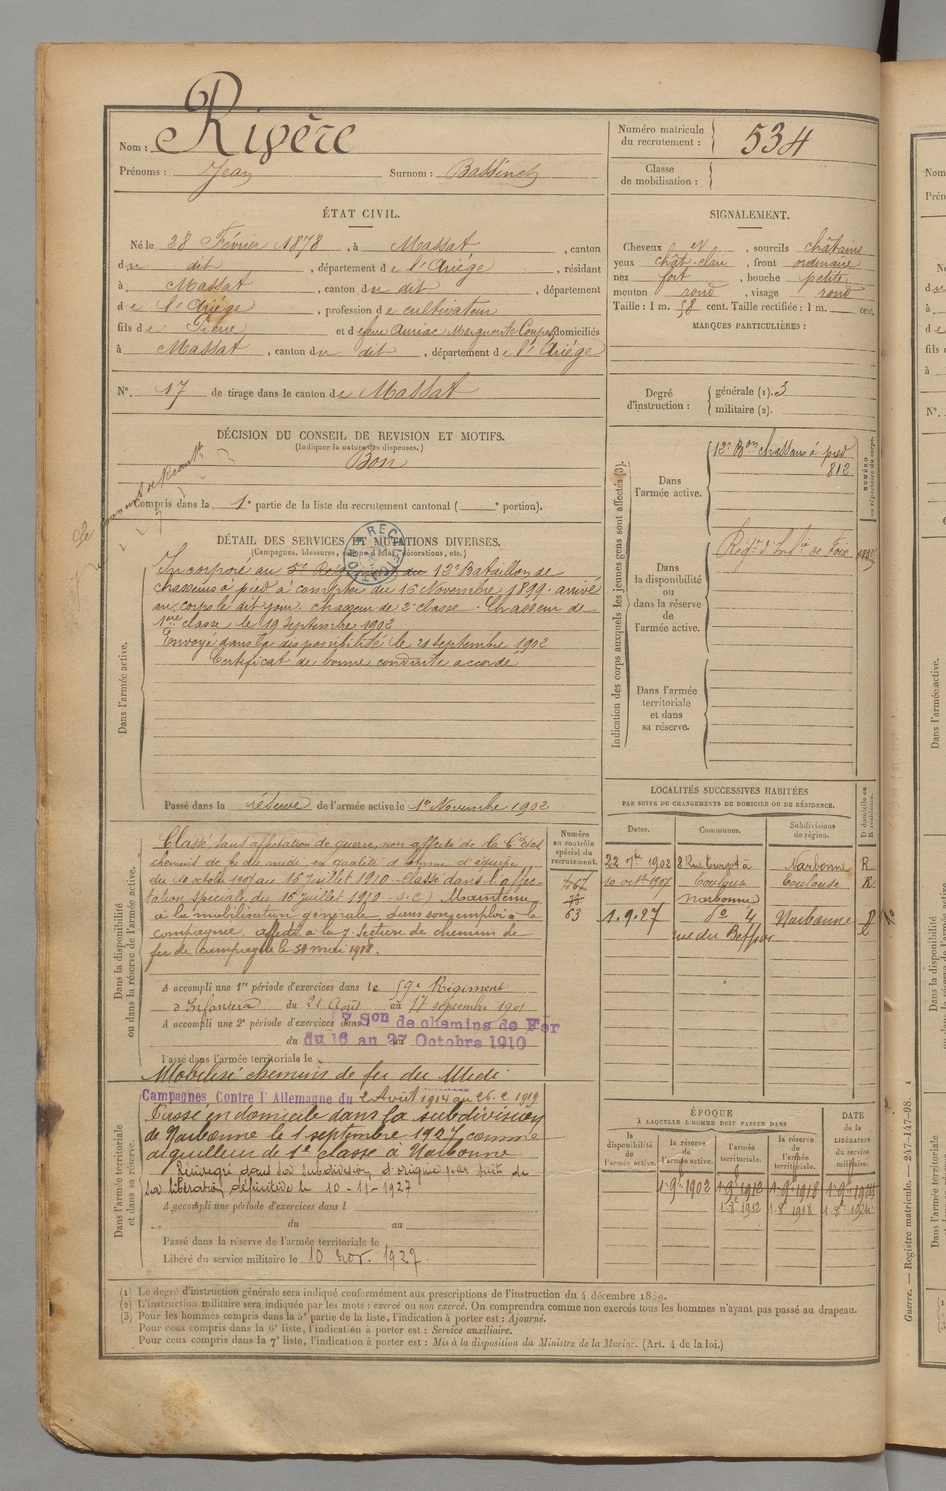 Nom : Rivère
Prénoms : Jean Surnom :
Numéro matricule du recrutement : 534
Classe de mobilisation :
ÉTAT CIVIL.
Né le 28 Février 1878, à Massat, canton
du dit, département de l'Ariège, résidant
à Massat, canton du dit, département
de l'Ariège, profession de cultivateur
fils de Pierre et de feue Auriac Marguerite domiciliés
à Massat, canton du dit, département de l'Ariège
N°. 17 de tirage dans le canton de Massat
SIGNALEMENT.
Cheveux , sourcils châtains
yeux chât-clair, front ordinaire
nez fort, bouche petite
menton rond, visage rond
Taille : 1 m. 58 cent. Taille rectifiée : 1 m. cent.
MARQUES PARTICULIÈRES :
Degré d'instruction : générale (1). 3
militaire (2).
DÉCISION DU CONSEIL DE REVISION ET MOTIFS.
(Indiquer la nature des dispenses.)
Bon
Compris dans la 1e partie de la liste du recrutement cantonal ( e portion).
DÉTAIL DES SERVICES ET MUTATIONS DIVERSES.
(Campagnes, blessures, actions d'éclat, décorations, etc.)
Dans l'armée active.
Incorporé au 5e Régiment du 12e Bataillon de
chasseurs à pied à compter du 16 Novembre 1899. arrivé
au corps le dit jour. chasseur de 2e classe. Chasseur de
1ère classe le 19 Septembre 1902
Envoyé dans la disponibilité le 21 septembre 1902
Certificat de bonne conduite accordé
Passé dans la réserve de l'armée active le 1er Novembre 1902
Indication des corps auxquels les jeunes gens sont affectés (3).
NUMÉRO au répertoire du corps.
Dans l'armée active.
12e Bon chasseurs à pied
812
Dans la disponibilité ou dans la réserve de l'armée active.
Régt d'Infrie de Foix
Dans l'armée territoriale et dans sa réserve.
LOCALITÉS SUCCESSIVES HABITÉES
PAR SUITE DE CHANGEMENTS DE DOMICILE OU DE RÉSIDENCE.
Dates. Communes. Subdivisions de région. D domicile ou R résidence.
22 7bre 1902 2 Rue Turgot à Narbonne R
10 octbre 1907 Toulouse Toulouse R
Narbonne
1.9.27 do 4 Narbonne
rue du
Dans la disponibilité ou dans la réserve de l'armée active.
Numéro au contrôle spécial du recrutement.
63
Classé sans affectation de guerre, non affecté de la Cie des
chemins de fer du midi en qualité d'homme d'équipe
du 10 octobre 1907 au 16 Juillet 1910 - Classé dans l'affec-
tation spéciale du 16 Juillet 1910 - s.c.) Maintenu
à la mobilisation générale dans son emploi à la
compagnie, affecté à la 7e Section de chemins de
fer de campagne le 31 mai 1918.
A accompli une 1re période d'exercices dans le 59e Régiment
d'Infanterie du 21 Août au 17 septembre 1901
A accompli une 2e période d'exercices dans 7 Son de chemins de Fer
du 16 au 27 Octobre 1910
Passé dans l'armée territoriale le
Mobilisé chemins de fer du Midi
Dans l'armée territoriale et dans sa réserve.
Campagnes Contre l'Allemagne du 2 Août 1914 au 26.2.1919
Passé en domicile dans la subdivision
de Narbonne le 1 septembre 1927 comme
aiguilleur de 1e classe à Narbonne
Réintegré dans sa subdivision d'origine par suite de
sa libération définitive le 10-11-1927
A accompli une période d'exercices dans l
du au
Passé dans la réserve de l'armée territoriale le
Libéré du service militaire le 10 nov. 1927.
ÉPOQUE
À LAQUELLE L'HOMME DOIT PASSER DANS
DATE DE LA LIBÉRATION DU SERVICE militaire.
la disponibilité de l'armée active. la réserve de l'armée active. l'armée territoriale. la réserve de l'armée territoriale.
1.9e 1902 1.9e 1912 1.9e 1918
1.8e 1912 1.8e 1918
(1) Le degré d'instruction générale sera indiqué conformément aux prescriptions de l'instruction du 4 décembre 1889.
(2) L'instruction militaire sera indiquée par les mots : exercé ou non exercé. On comprendra comme non exercés tous les hommes n'ayant pas passé au drapeau.
(3) Pour les hommes compris dans la 5e partie de la liste, l'indication à porter est : Ajourné.
Pour ceux compris dans la 6e liste, l'indication à porter est : Service auxiliaire.
Pour ceux compris dans la 7e liste, l'indication à porter est : Mis à la disposition du Ministre de la Marine. (Art. 4 de la loi.)
Guerre. — Registre matricule. — 247-147-98. 1